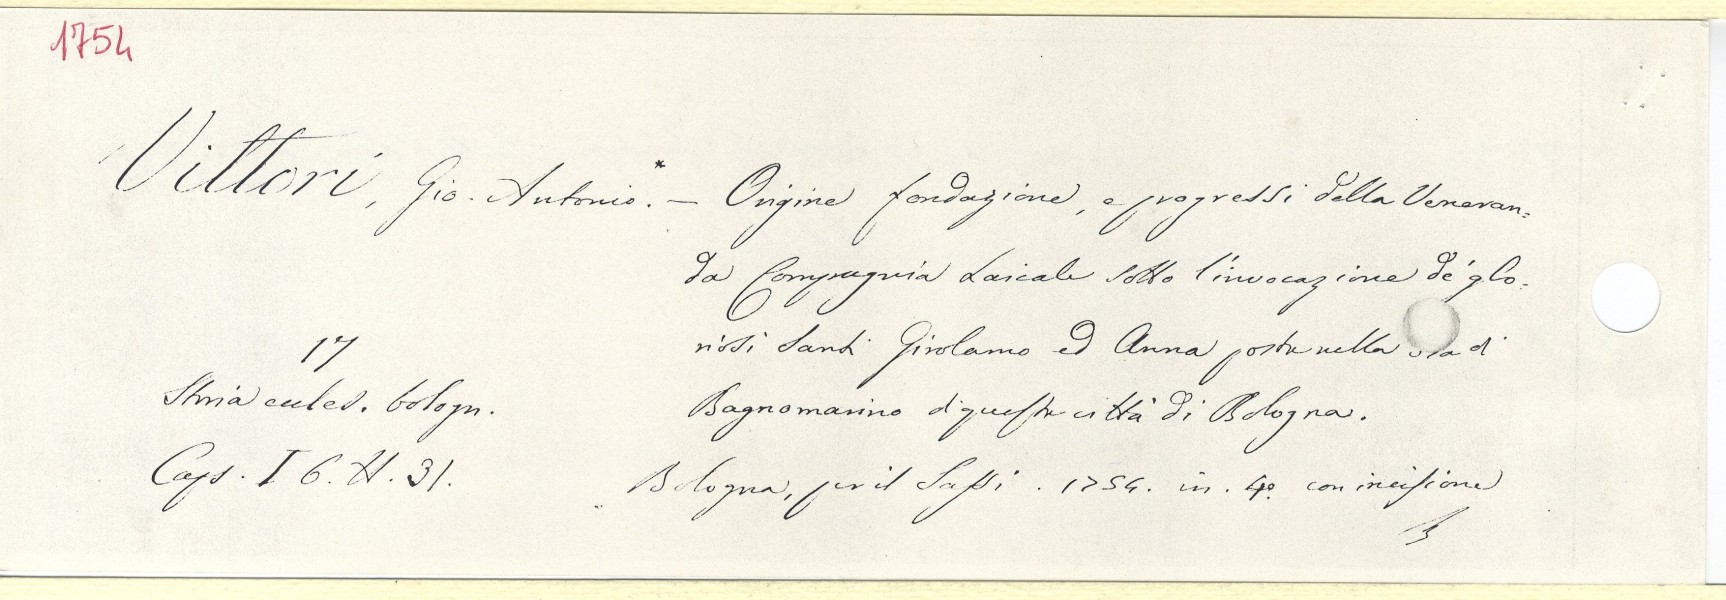 1754
Vittori, Gio. Antonio.* — Origine fondazione, e progressi della Veneran=
da Compagnia Laicale sotto l'invocazione de' glo=
riosi Santi Girolamo ed Anna posta nella via di
Bagnomarino di questa città di Bologna.
Bologna, per il Sassi. 1754. in. 4º con incisione
17
Storia eccles. bologn.
Caps. I 6. H. 31.